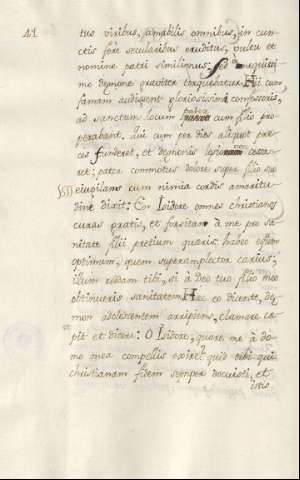 41
tus viribus, amabilis omnibus, in cun-
ctis fere secularibus eruditus, vultu et
nomine patri similimus; sed a nequissi-
mo demone graviter torquebatur. Hi cum
famam audissent gloriosissimi confessoris,
ad sanctum locum cum filio pro-
perabant. Qui cum per dies aliquot pre-
ces funderet, et demonis cessa-
ret; pater commotus dolore super filio suo
ejupilans cum nimia cordis amaritu-
dine dixit: En Isidore omnes christianos
curas gratis, et forsitan à me pro sa-
nitate filii pretium quæris: habeo equum
optimum, quem superamplector carius;
illum reddam tibi, si à Deo tuo filio meo
obtinueris sanitatem. Hec eo dicente, de-
mon adolescentem arripiens, clamare ce-
pit et dicere: O Isidore, quare me à do-
mo mea compellis exire? quid tibi qui
christianam fidem semper docuisti, et
istis